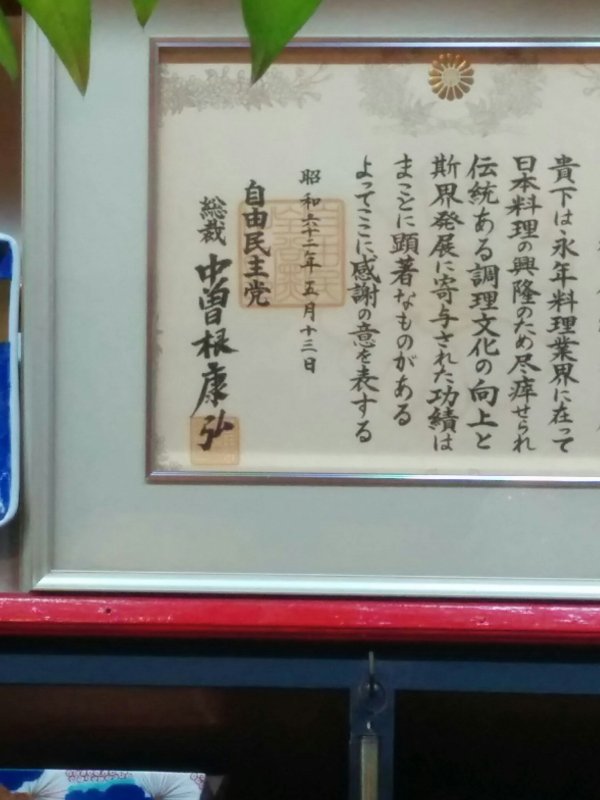 貴下は永年料理業界に在って
日本料理の興隆のため尽瘁せられ
伝統ある調理文化の向上と
斯界発展に寄与された功績は
まことに顕著なものがある
よってここに感謝の意を表する
昭和六十二年五月十三日
自由民主党
総裁 中曽根康弘